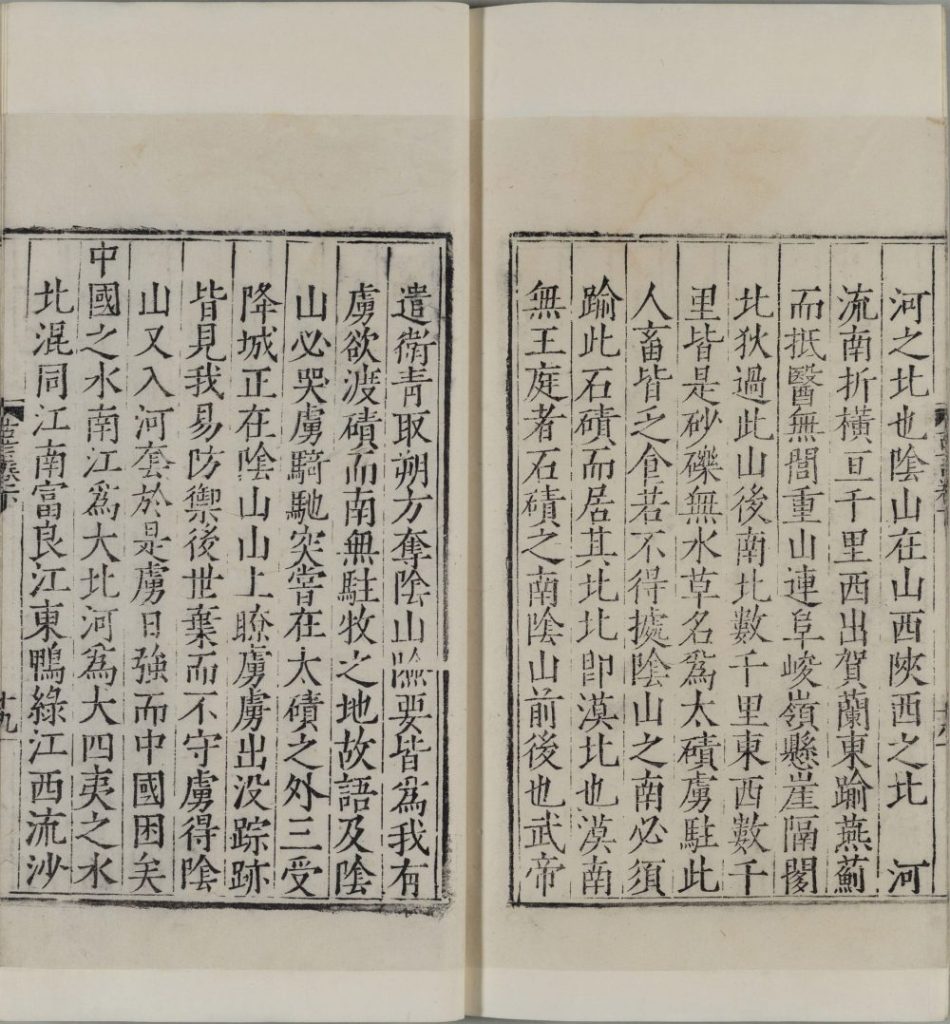 河之北也陰山在山西陝西之北　河
流南折橫亘千里西出賀蘭東踰燕薊
而抵醫無閭重山連阜峻嶺懸崖隔閡
北狄過此山後南北數千里東西數千
里皆是砂磧無水草名為大磧虜駐此
人畜皆乏食若不得據陰山之南必須
踰此石磧而居其北北即漠北也漠南
無王庭者石磧之南陰山前後也武帝
遣衛青取朔方奪陰山險要皆為我有
虜欲渡磧而南無駐牧之地故語及陰
山必哭虜騎馳突嘗在大磧之外三受
降城正在陰山山上瞭虜虜出没踪跡
皆見我易防禦後世棄而不守虜得陰
山又入河套於是虜日強而中國困矣
中國之水南江為大北河為大四夷之水
北混同江南富良江東鴨綠江西流沙
十九